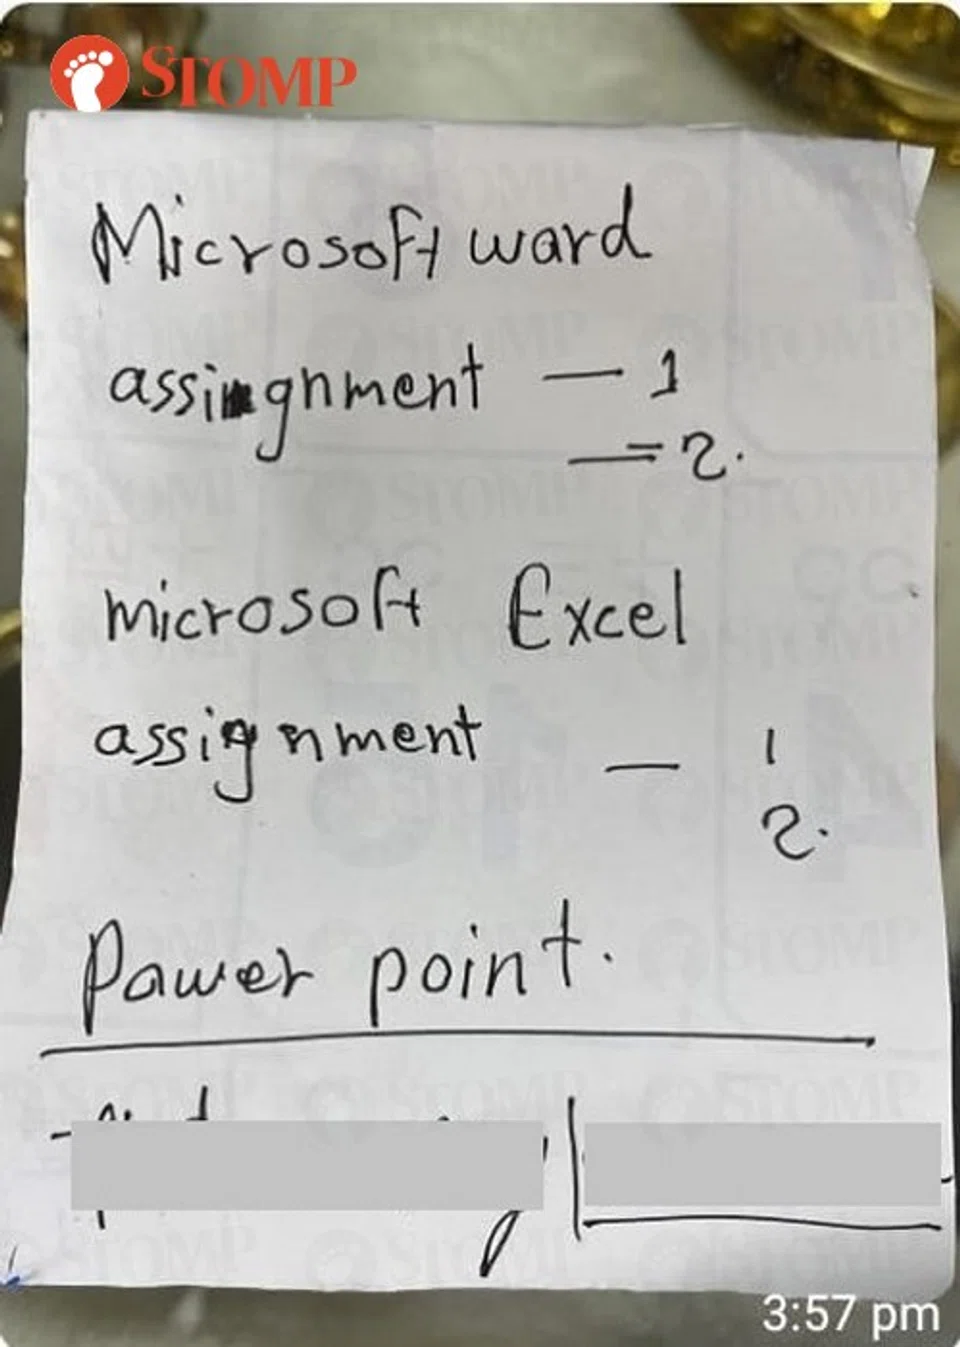 STOMP
Microsoft ward
assingnment — 1
— = 2.
microsoft Excel
assignment — 1
2.
Pawer point.
3:57 pm